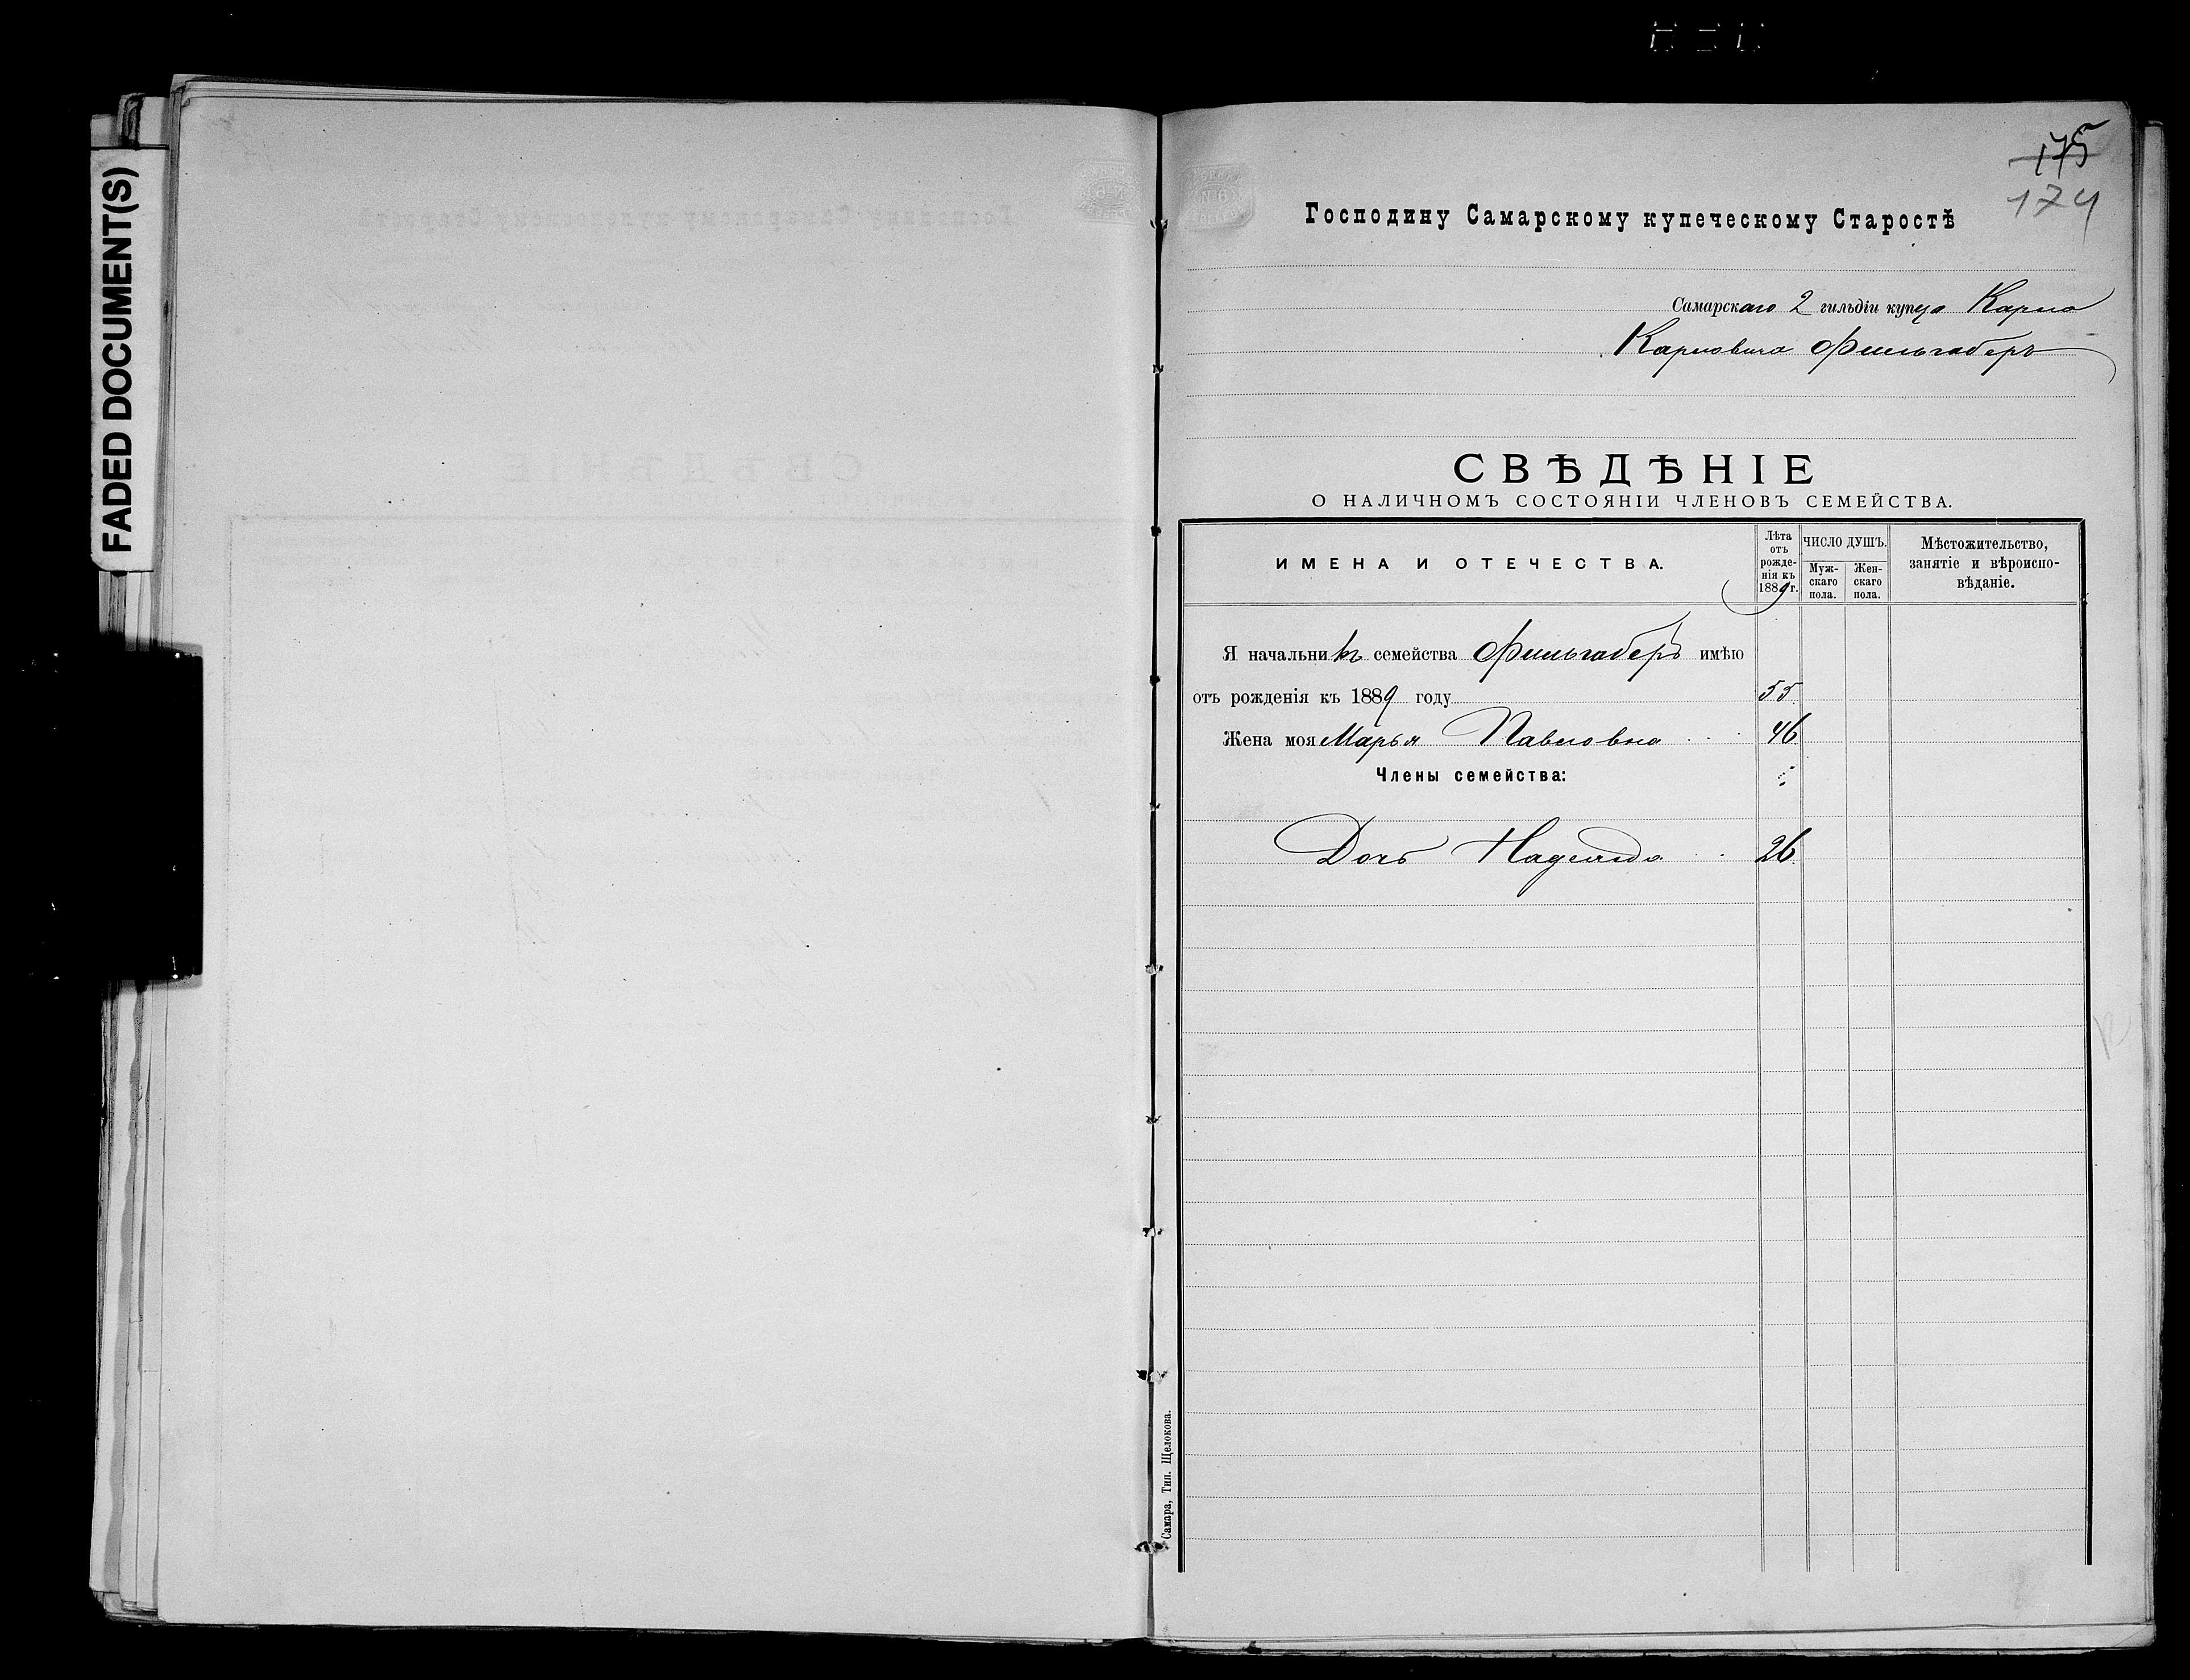 FADED DOCUMENT(S)
175
174
Господину Самарскому купеческому Старостѣ
Самарскаго 2 гильдіи купца Карла
Карловича Фильгаберъ
СВѢДѢНІЕ
О НАЛИЧНОМЪ СОСТОЯНІИ ЧЛЕНОВЪ СЕМЕЙСТВА.
ИМЕНА И ОТЕЧЕСТВА.
Лѣта
отъ
рожде-
нія къ
1889 г.
ЧИСЛО ДУШЪ.
Муж-
скаго
пола.
Жен-
скаго
пола.
Мѣстожительство,
занятіе и вѣроиспо-
вѣданіе.
Я начальникъ семейства Фильгаберъ имѣю
отъ рожденія къ 1889 году 55
Жена моя Марья Павловна 46
Члены семейства:
Дочь Надежда 26
Самара, Тип. Щелокова.